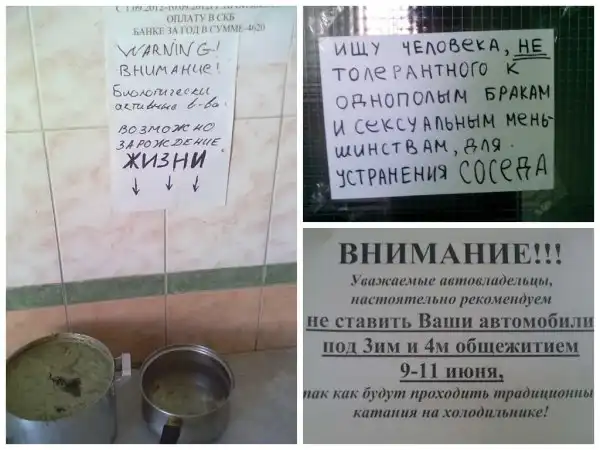 С 1.09.2012-10.09.2012 г
ОПЛАТУ В СКБ
БАНКЕ ЗА ГОД В СУММЕ-4620
WARNING!
ВНИМАНИЕ!
Биологически
активные в-ва.
ВОЗМОЖНО
ЗАРОЖДЕНИЕ
ЖИЗНИ
ИЩУ ЧЕЛОВЕКА, НЕ
ТОЛЕРАНТНОГО К
ОДНОПОЛЫМ БРАКАМ
И СЕКСУАЛЬНЫМ МЕНЬ-
ШИНСТВАМ, ДЛЯ
УСТРАНЕНИЯ СОСЕДА
ВНИМАНИЕ!!!
Уважаемые автовладельцы,
настоятельно рекомендуем
не ставить Ваши автомобили
под 3им и 4м общежитием
9-11 июня,
так как будут проходить традиционны
катания на холодильнике!